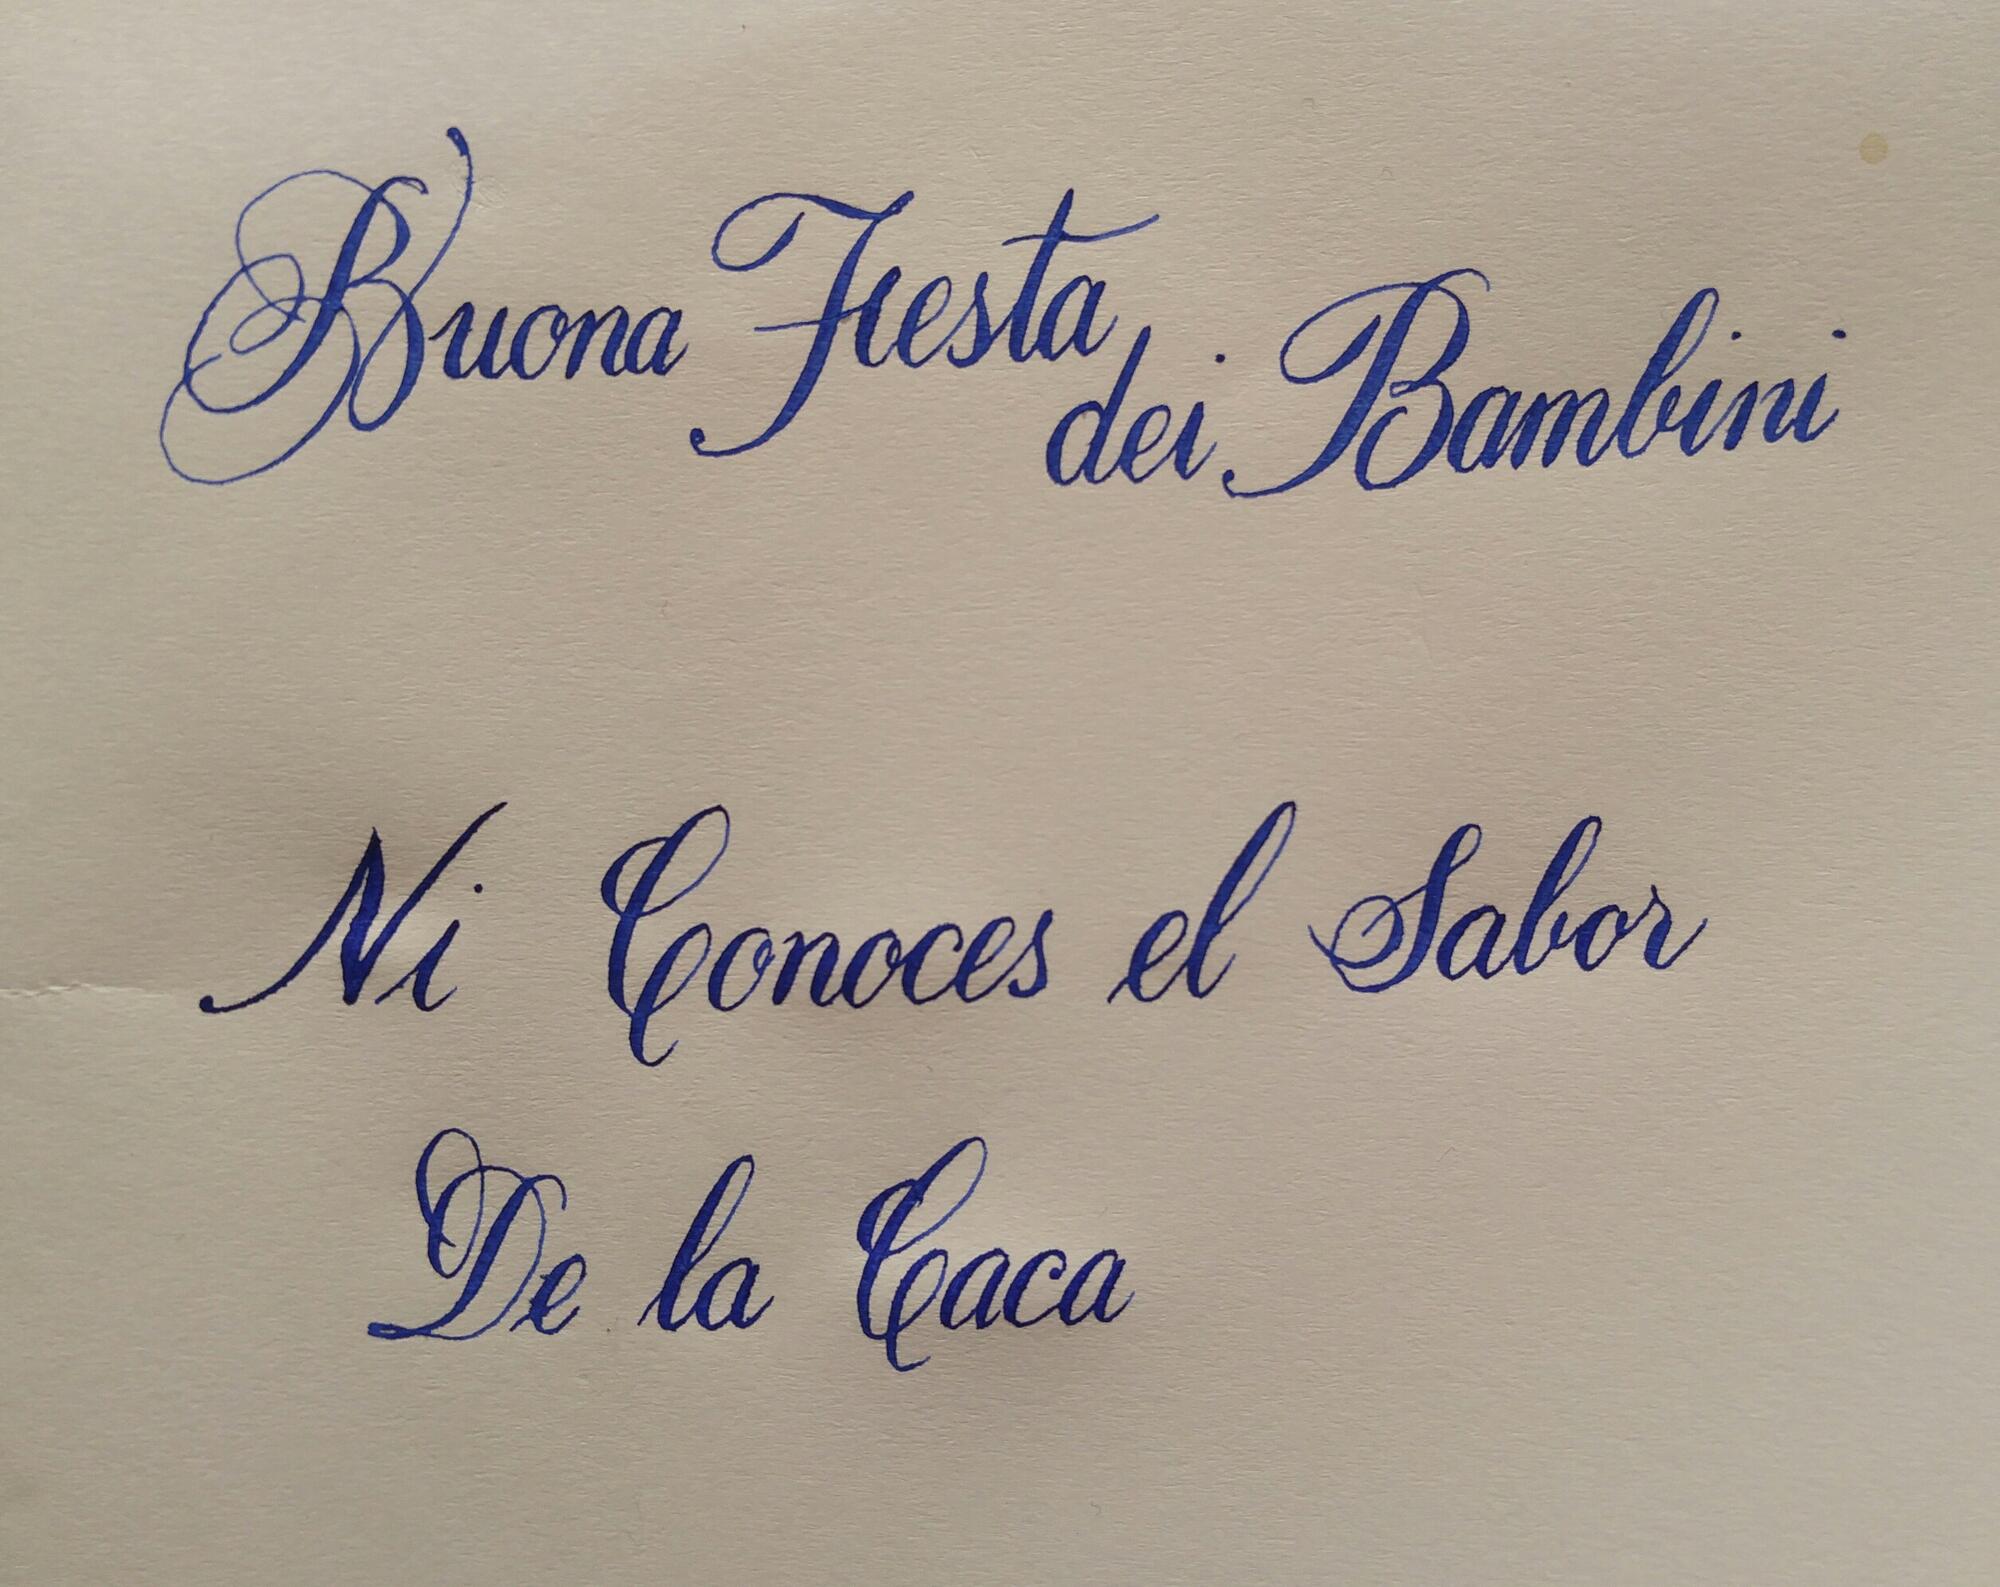 Buona Fiesta
dei Bambini
Ni Conoces el Sabor
De la Caca